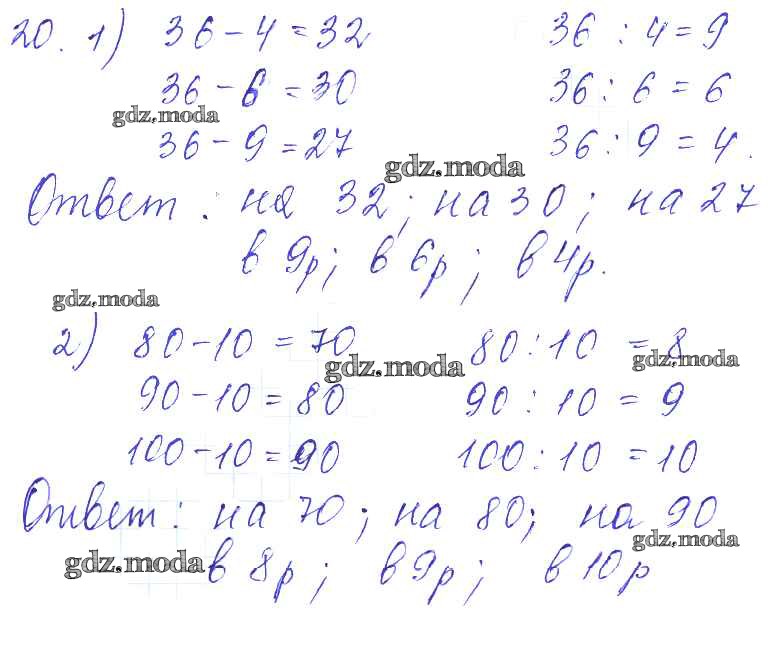 20. 1) 36 - 4 = 32 36 : 4 = 9
36 - 6 = 30 36 : 6 = 6
gdz.moda
36 - 9 = 27 36 : 9 = 4.
gdz.moda
Ответ: на 32; на 30; на 27
в 9р; в 6р; в 4р.
gdz.moda
2) 80 - 10 = 70 80 : 10 = 8
gdz.moda gdz.moda
90 - 10 = 80 90 : 10 = 9
100 - 10 = 90 100 : 10 = 10
Ответ: на 70; на 80; на 90
gdz.moda gdz.moda
в 8р; в 9р; в 10р